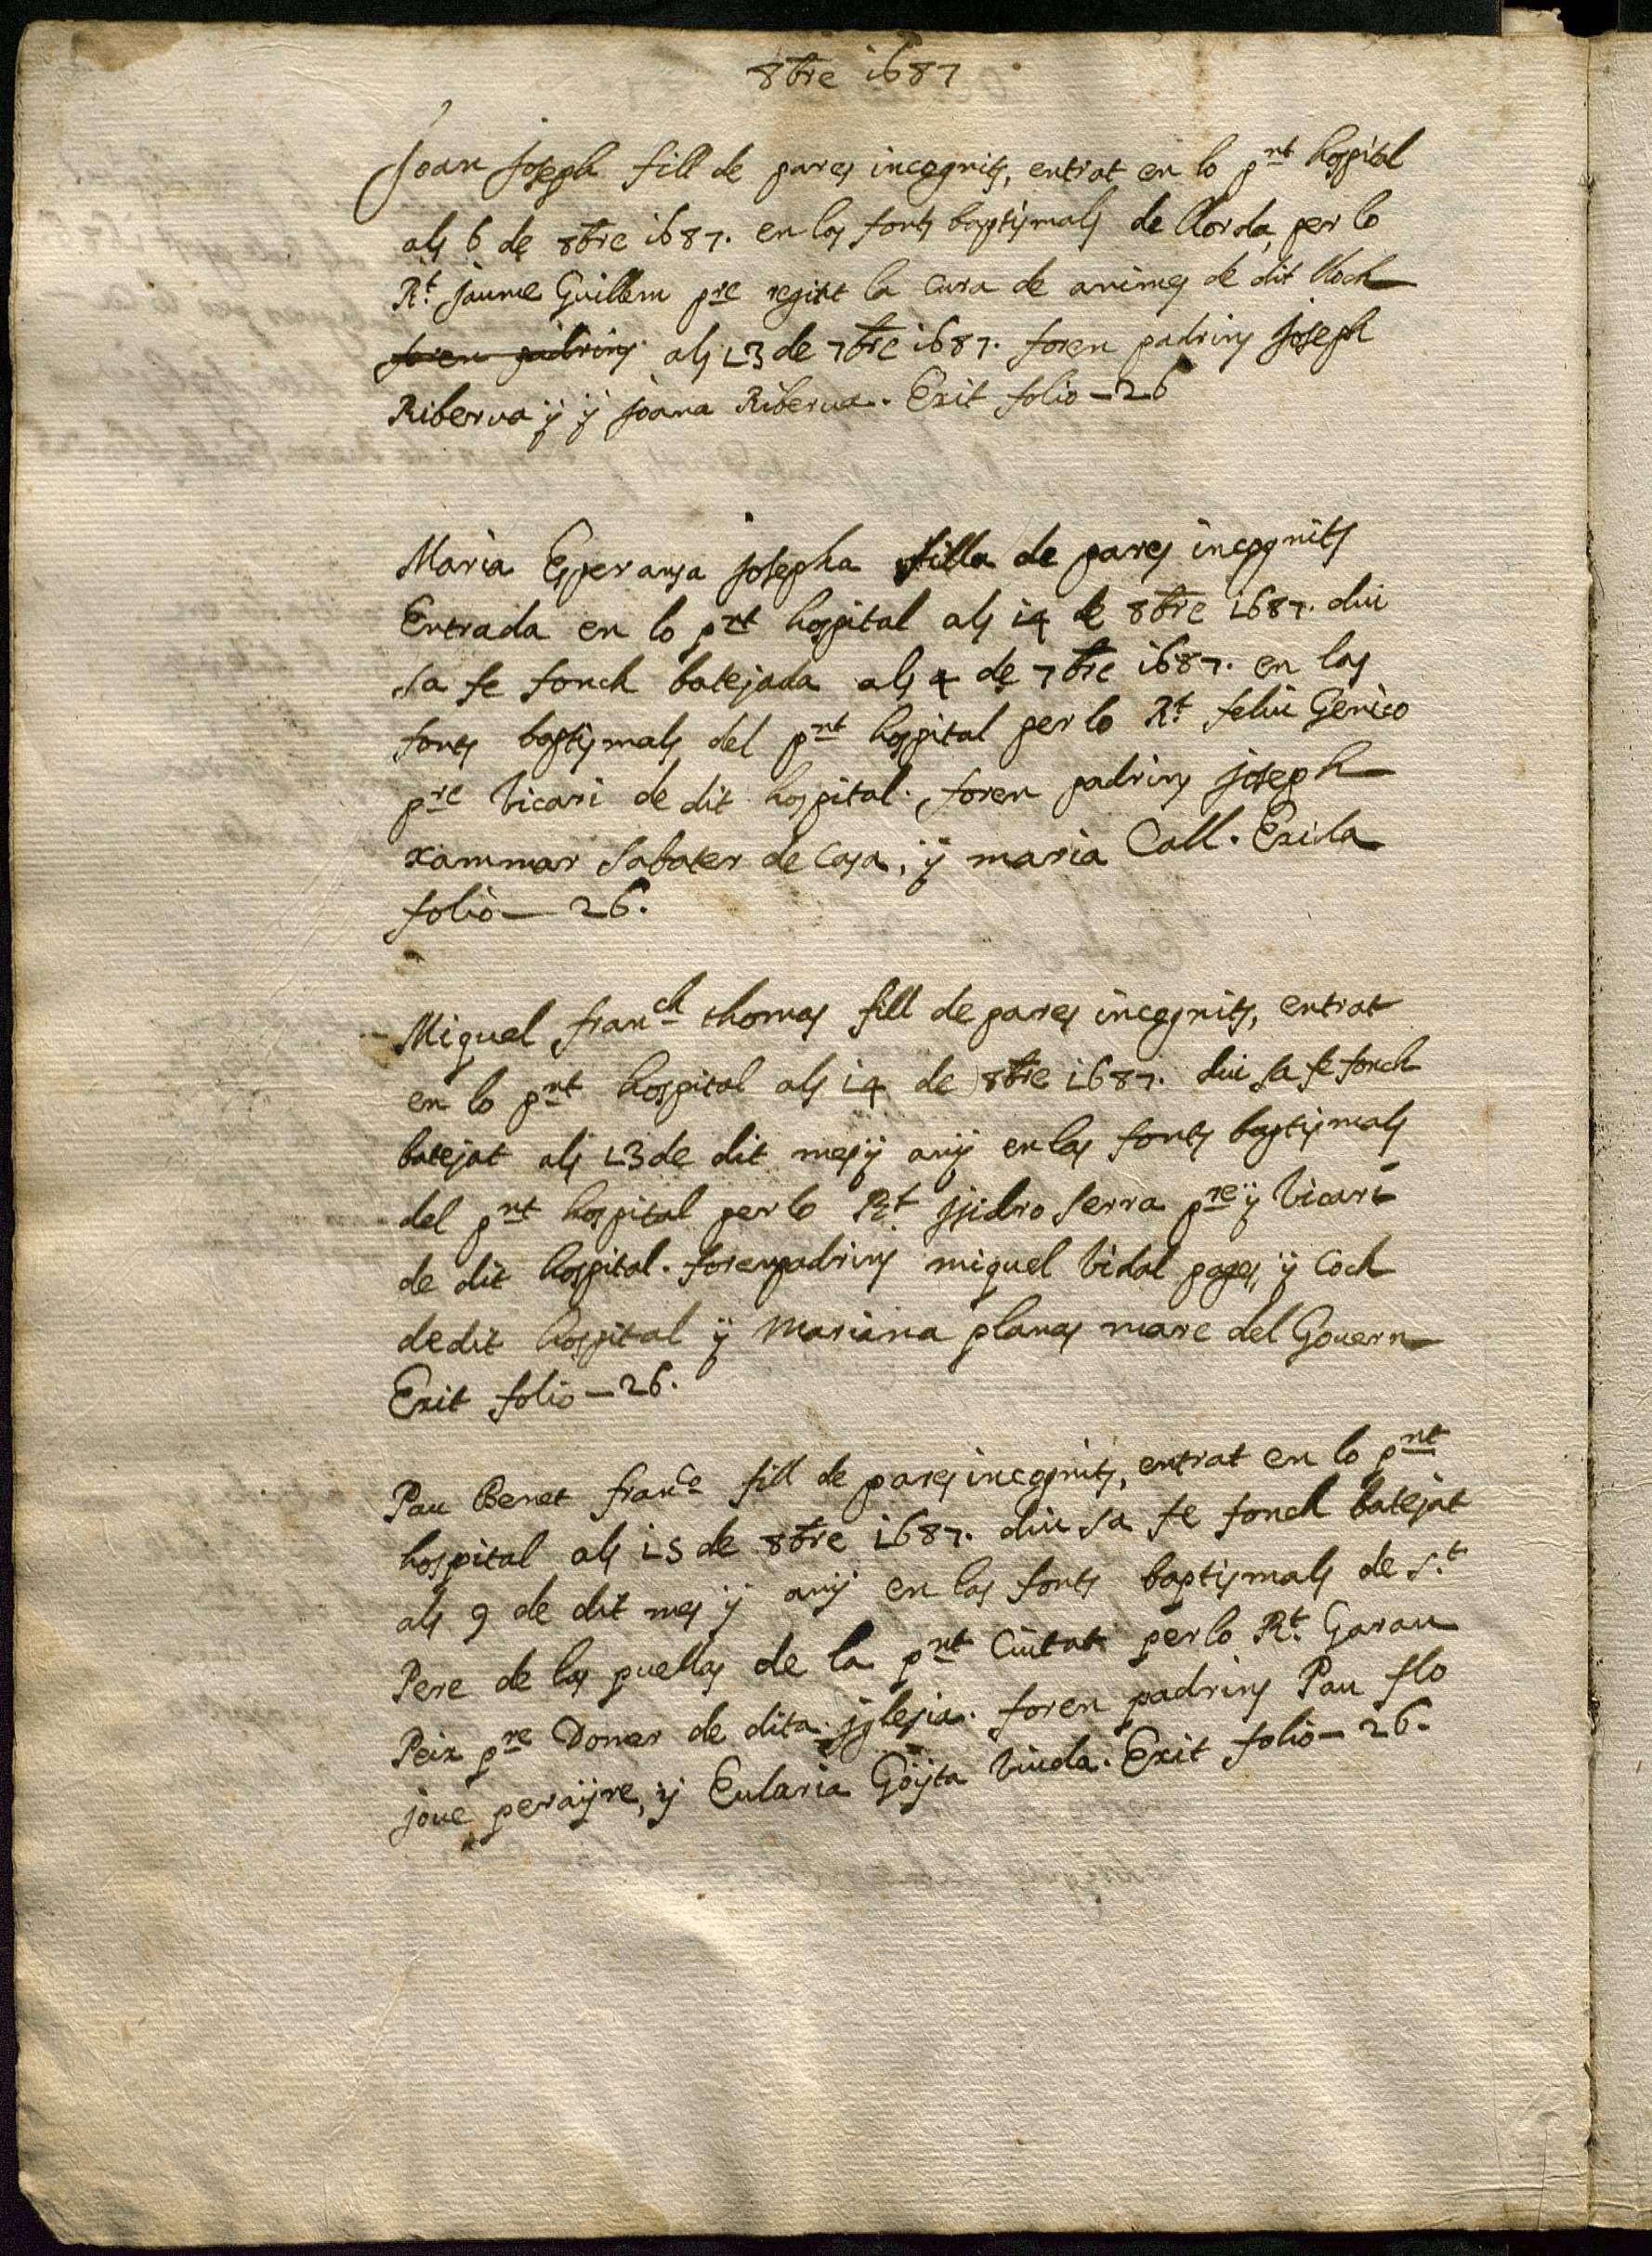 8bre 1687
Joan Joseph fill de pares incognits, entrat en lo pnt hospital
als 6 de 8bre 1687. en las fonts baptismals de llorda, per lo
Rt. Jaume Guillem pre regint la cura de animes de dit lloch
foren padrins als 13 de 7bre 1687. foren padrins Joseph
Riberva ÿ ÿ Joana Riberva. Exit folio - 26
Maria Esperansa Josepha filla de pares incognits
Entrada en lo pnt hospital als 14 de 8bre 1687. diu
sa fe fonch batejada als 4 de 7bre 1687. en las
fonts baptismals del pnt hospital per lo Rt. feliu Genico
pre Vicari de dit hospital. foren padrins Joseph
xammar Sabater de casa, ÿ maria Call. Exida
folio - 26.
Miquel franch thomas fill de pares incognits, entrat
en lo pnt hospital als 14 de 8bre 1687. diu sa fe fonch
batejat als 13 de dit mes ÿ anÿ en las fonts baptismals
del pnt hospital per lo Rt. Jsidro Serra pre ÿ Vicari
de dit hospital. foren padrins miquel Vidal pages ÿ Coch
de dit hospital ÿ Mariana planas mare del Govern
Exit folio - 26.
Pau Benet franco fill de pares incognits, entrat en lo pnt
hospital als 15 de 8bre 1687. diu sa fe fonch batejat
als 9 de dit mes ÿ anÿ en las fonts baptismals de St.
Pere de las puellas de la pnt Ciutat per lo Rt. Garau
Peix pre Domer de dita jglesia. foren padrins Pau flo
jove peraÿre, ÿ Eularia Goÿta Viuda. Exit folio - 26.